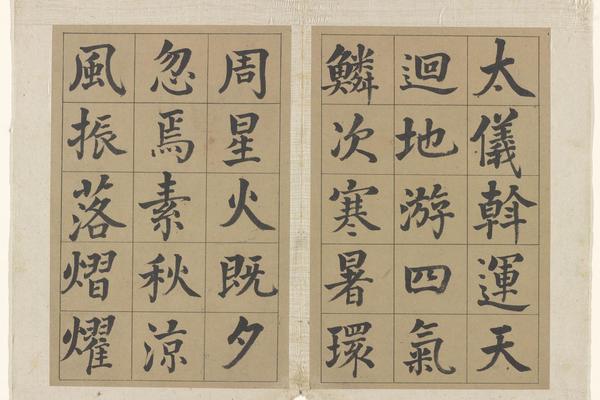 太儀斡運天
迴地游四氣
鱗次寒暑環
周星火既夕
忽焉素秋涼
風振落熠燿